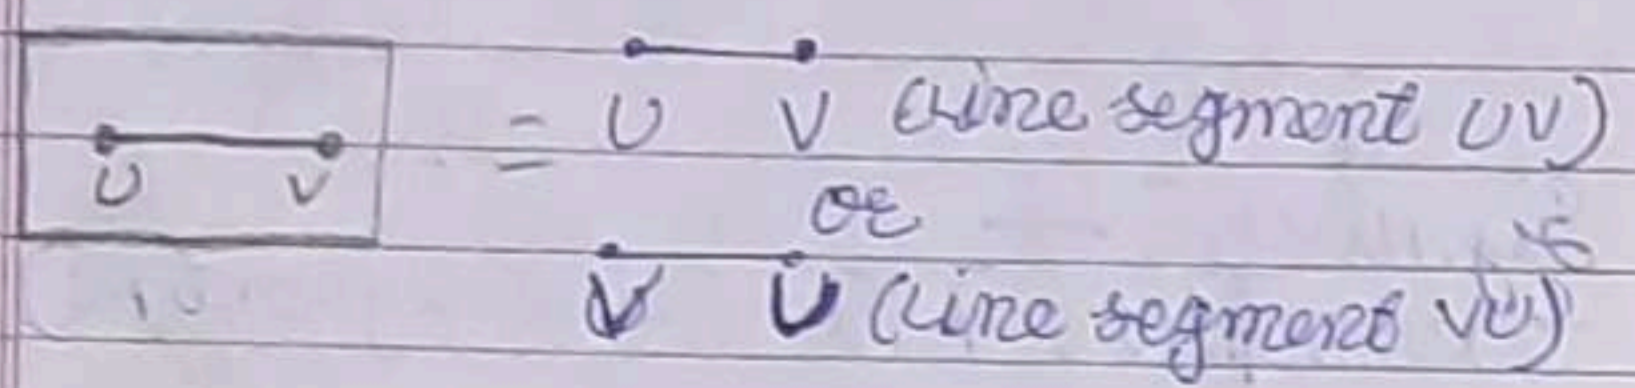 U V = U V (Line segment UV)
or
V U (Line segment VU)